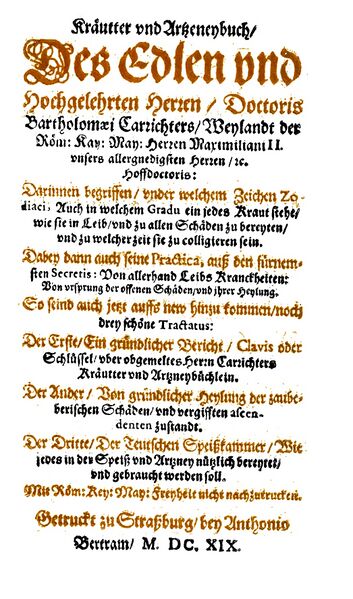 Kräutter vnd Artzeneybuch/
Des Edlen vnd
Hochgelehrten Herren / Doctoris
Bartholomæi Carrichters/ Weylandt der
Röm: Kay: May: Herren Maximiliani II.
vnsers allergnedigsten Herren /ꝛc.
Hoffdoctoris:
Darinnen begriffen / vnder welchem Zeichen Zo-
diaci, Auch in welchem Gradu ein jedes Kraut stehe/
wie sie in Leib/ vnd zu allen Schäden zu bereyten/
vnd zu welcher zeit sie zu colligieren sein.
Dabey dann auch seine Practica, auß den fürnem-
sten Secretis: Von allerhand Leibs Kranckheiten:
Von vrsprung der offenen Schäden/ vnd jhrer Heylung.
So seind auch jetzt auffs new hinzu kommen/ noch
drey schöne Tractatus:
Der Erste/ Ein gründlicher Bericht / Clavis oder
Schlüssel/ vber obgemeltes Herrn Carrichters
Kräutter vnd Artzneybüchlein.
Der Ander / Von gründlicher Heylung der zaube-
berischen Schäden/ vnd vergifften ascen-
denten zustandt.
Der Dritte/ Der Teutschen Speißkammer/ Wie
jedes in der Speiß vnd Artzney nützlich bereytet/
vnd gebraucht werden soll.
Mit Röm: Key: May: Freyheit nicht nachzutrucken.
Getruckt zu Straßburg/ bey Anthonio
Bertram/ M. DC. XIX.